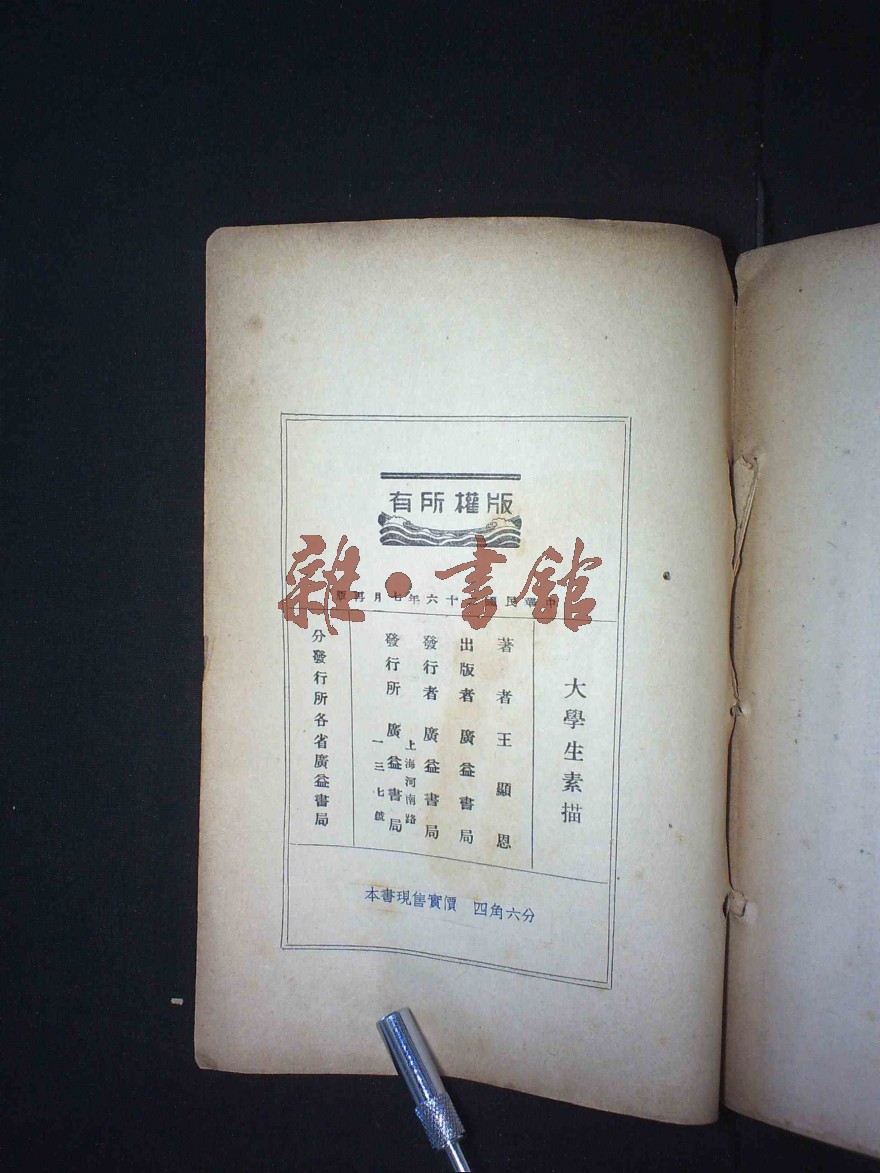 版權所有
雜·書館
中華民國二十六年七月再版
大學生素描
著者 王顯恩
出版者 廣益書局
發行者 廣益書局
上海河南路
一三七號
發行所 廣益書局
分發行所 各省廣益書局
本書現售實價 四角六分